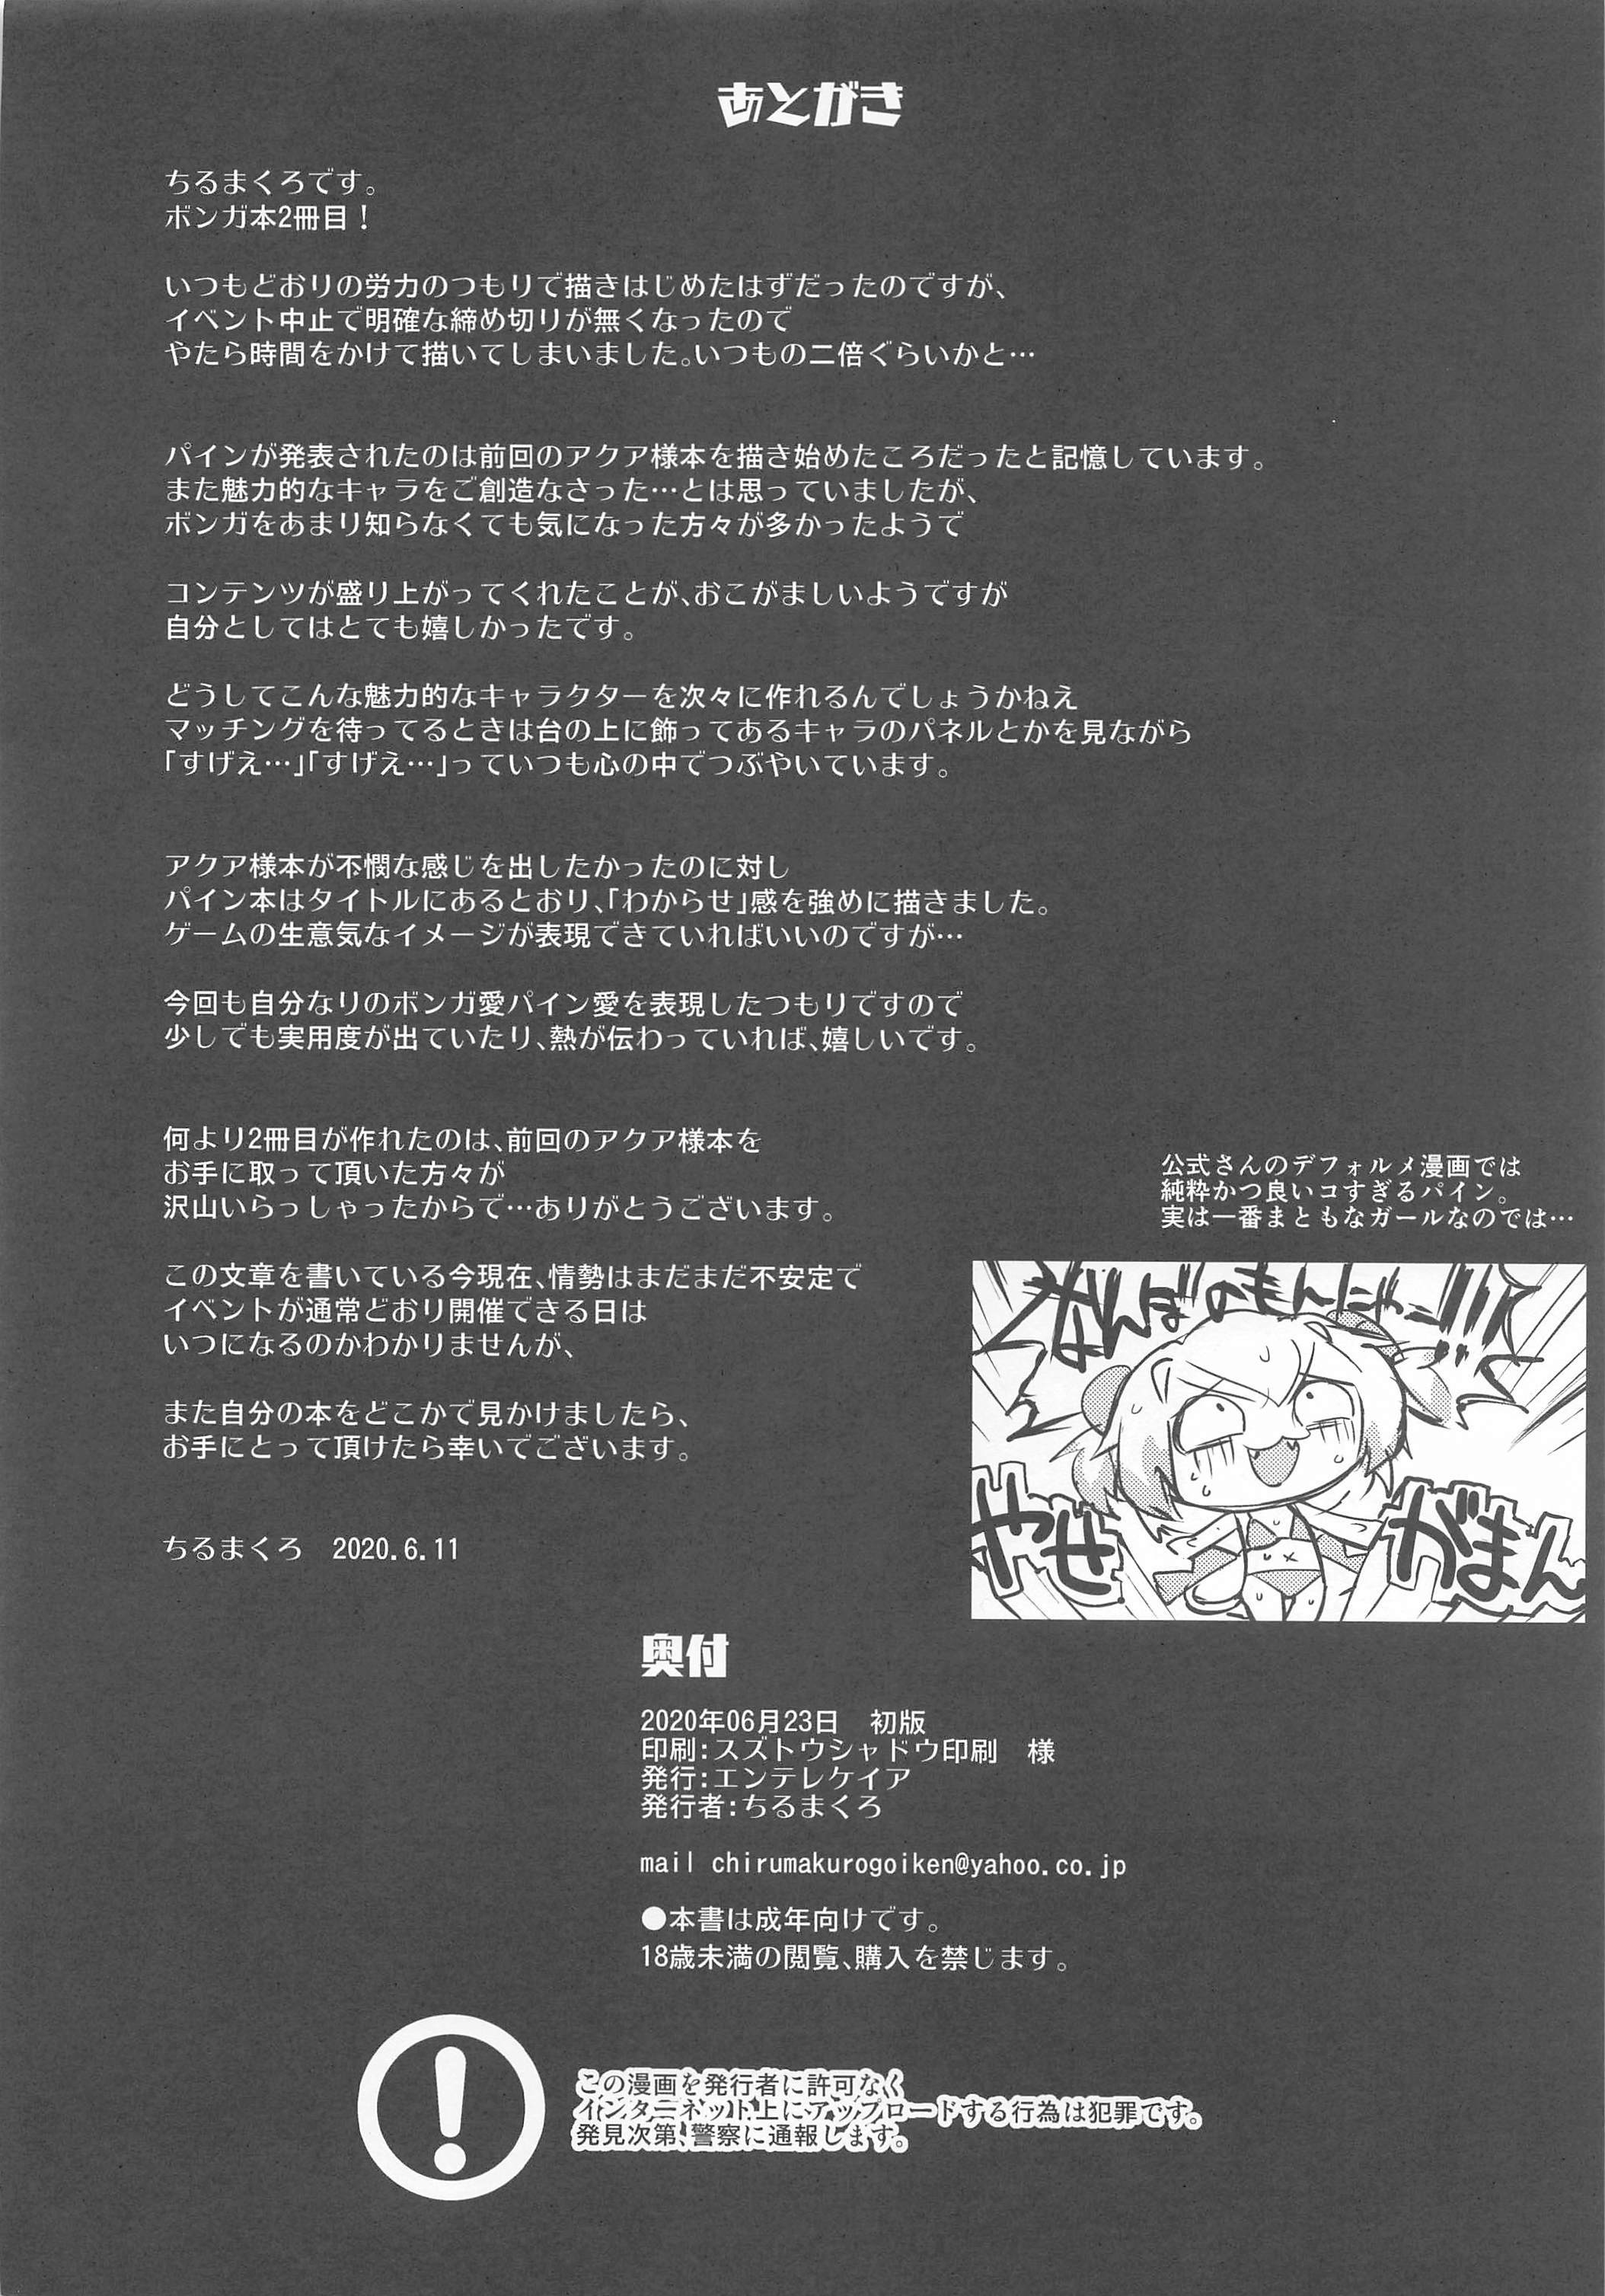 あとがき
ちるまくろです。
ボンガ本2冊目！
いつもどおりの労力のつもりで描きはじめたはずだったのですが、
イベント中止で明確な締め切りが無くなったので
やたら時間をかけて描いてしまいました。いつもの二倍ぐらいかと…
パインが発表されたのは前回のアクア様本を描き始めたころだったと記憶しています。
また魅力的なキャラをご創造なさった…とは思っていましたが、
ボンガをあまり知らなくても気になった方々が多かったようで
コンテンツが盛り上がってくれたことが、おこがましいようですが
自分としてはとても嬉しかったです。
どうしてこんな魅力的なキャラクターを次々に作れるんでしょうかねえ
マッチングを待ってるときは台の上に飾ってあるキャラのパネルとかを見ながら
「すげえ…」「すげえ…」っていつも心の中でつぶやいています。
アクア様本が不憫な感じを出したかったのに対し
パイン本はタイトルにあるとおり、「わからせ」感を強めに描きました。
ゲームの生意気なイメージが表現できていればいいのですが…
今回も自分なりのボンガ愛パイン愛を表現したつもりですので
少しでも実用度が出ていたり、熱が伝わっていれば、嬉しいです。
何より2冊目が作れたのは、前回のアクア様本を
お手に取って頂いた方々が
沢山いらっしゃったからで…ありがとうございます。
この文章を書いている今現在、情勢はまだまだ不安定で
イベントが通常どおり開催できる日は
いつになるのかわかりませんが、
また自分の本をどこかで見かけましたら、
お手にとって頂けたら幸いでございます。
ちるまくろ　2020.6.11
公式さんのデフォルメ漫画では
純粋かつ良いコすぎるパイン。
実は一番まともなガールなのでは…
なんぼのもんにゃー!!!
やせ
がまん
奥付
2020年06月23日　初版
印刷：スズトウシャドウ印刷　様
発行：エンテレケイア
発行者：ちるまくろ
mail chirumakurogoiken@yahoo.co.jp
●本書は成年向けです。
18歳未満の閲覧、購入を禁じます。
この漫画を発行者に許可なく
インターネット上にアップロードする行為は犯罪です。
発見次第、警察に通報します。